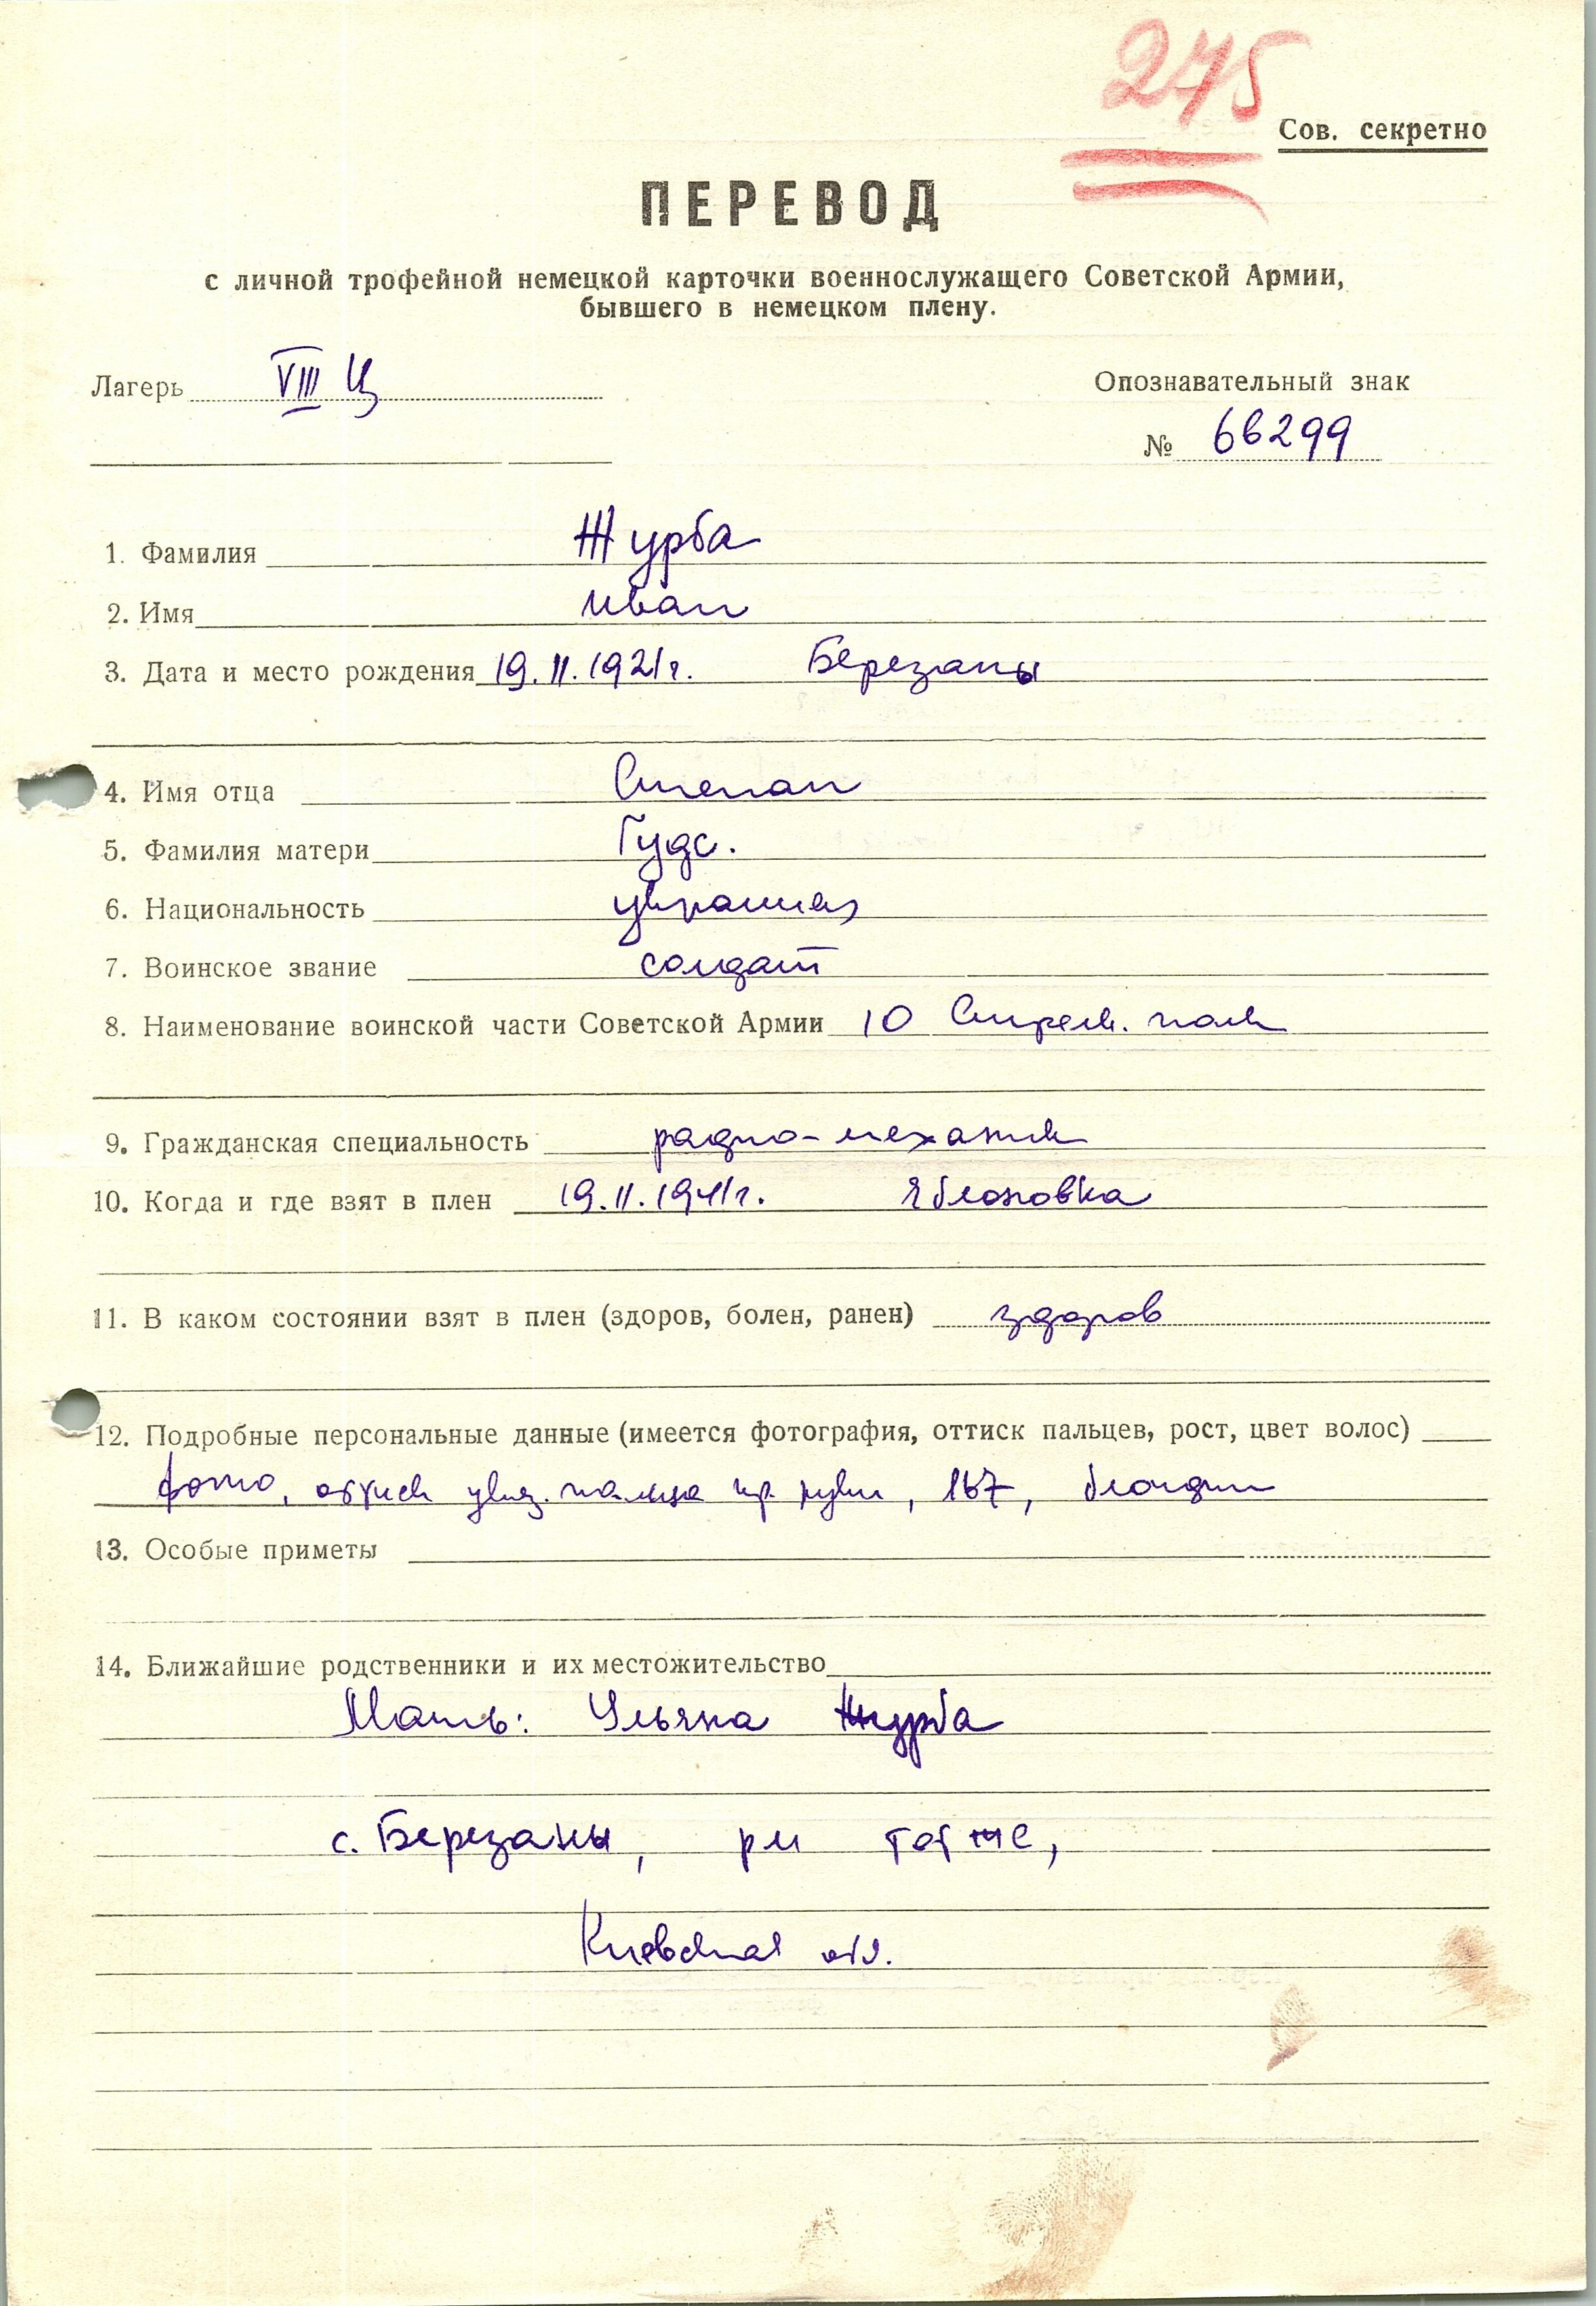 275
Сов. секретно
ПЕРЕВОД
с личной трофейной немецкой карточки военнослужащего Советской Армии,
бывшего в немецком плену.
Лагерь VIII Ц
Опознавательный знак
№ 66299
1. Фамилия Журба
2. Имя Иван
3. Дата и место рождения 19.II.1921г. Березаны
4. Имя отца Степан
5. Фамилия матери Гудс.
6. Национальность украинец
7. Воинское звание солдат
8. Наименование воинской части Советской Армии 10 Стрелк. полк
9. Гражданская специальность радио-механик
10. Когда и где взят в плен 19.II.1941г. Яблоновка
11. В каком состоянии взят в плен (здоров, болен, ранен) здоров
12. Подробные персональные данные (имеется фотография, оттиск пальцев, рост, цвет волос)
фото, оттиск указ. пальца пр. руки, 167, блондин
13. Особые приметы
14. Ближайшие родственники и их местожительство
Мать: Ульяна Журба
с. Березаны, рн тот же,
Киевская обл.